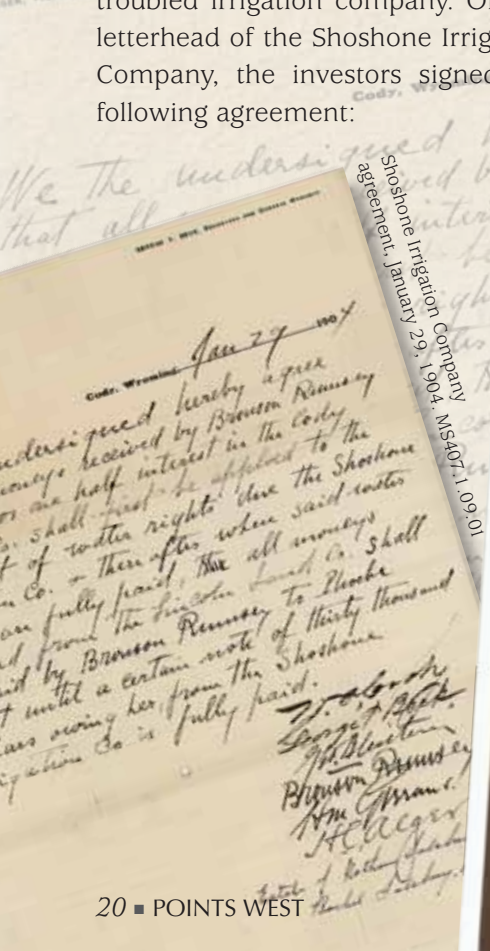 troubled irrigation company. O
letterhead of the Shoshone Irrig
Company, the investors signed
following agreement:
Cody, Wyo
We the undersigned
that all
Shoshone Irrigation Company
agreement, January 29, 1904. MS407.1.09.01
Cody, Wyoming Jan 29 1904
ndersigned hereby agree
moneys received by Bronson Rumsey
one half interest in the Cody
Co. shall first be applied to the
t of water rights due the Shoshone
n Co. & thereafter when said water
are fully paid, all moneys
d from the Lincoln Land Co. shall
aid by Bronson Rumsey to Phoebe
t until a certain note of thirty thousand
ars owing her from the Shoshone
igation Co is fully paid.
George T Beck
Bronson Rumsey
H C Alger
20 ■ POINTS WEST